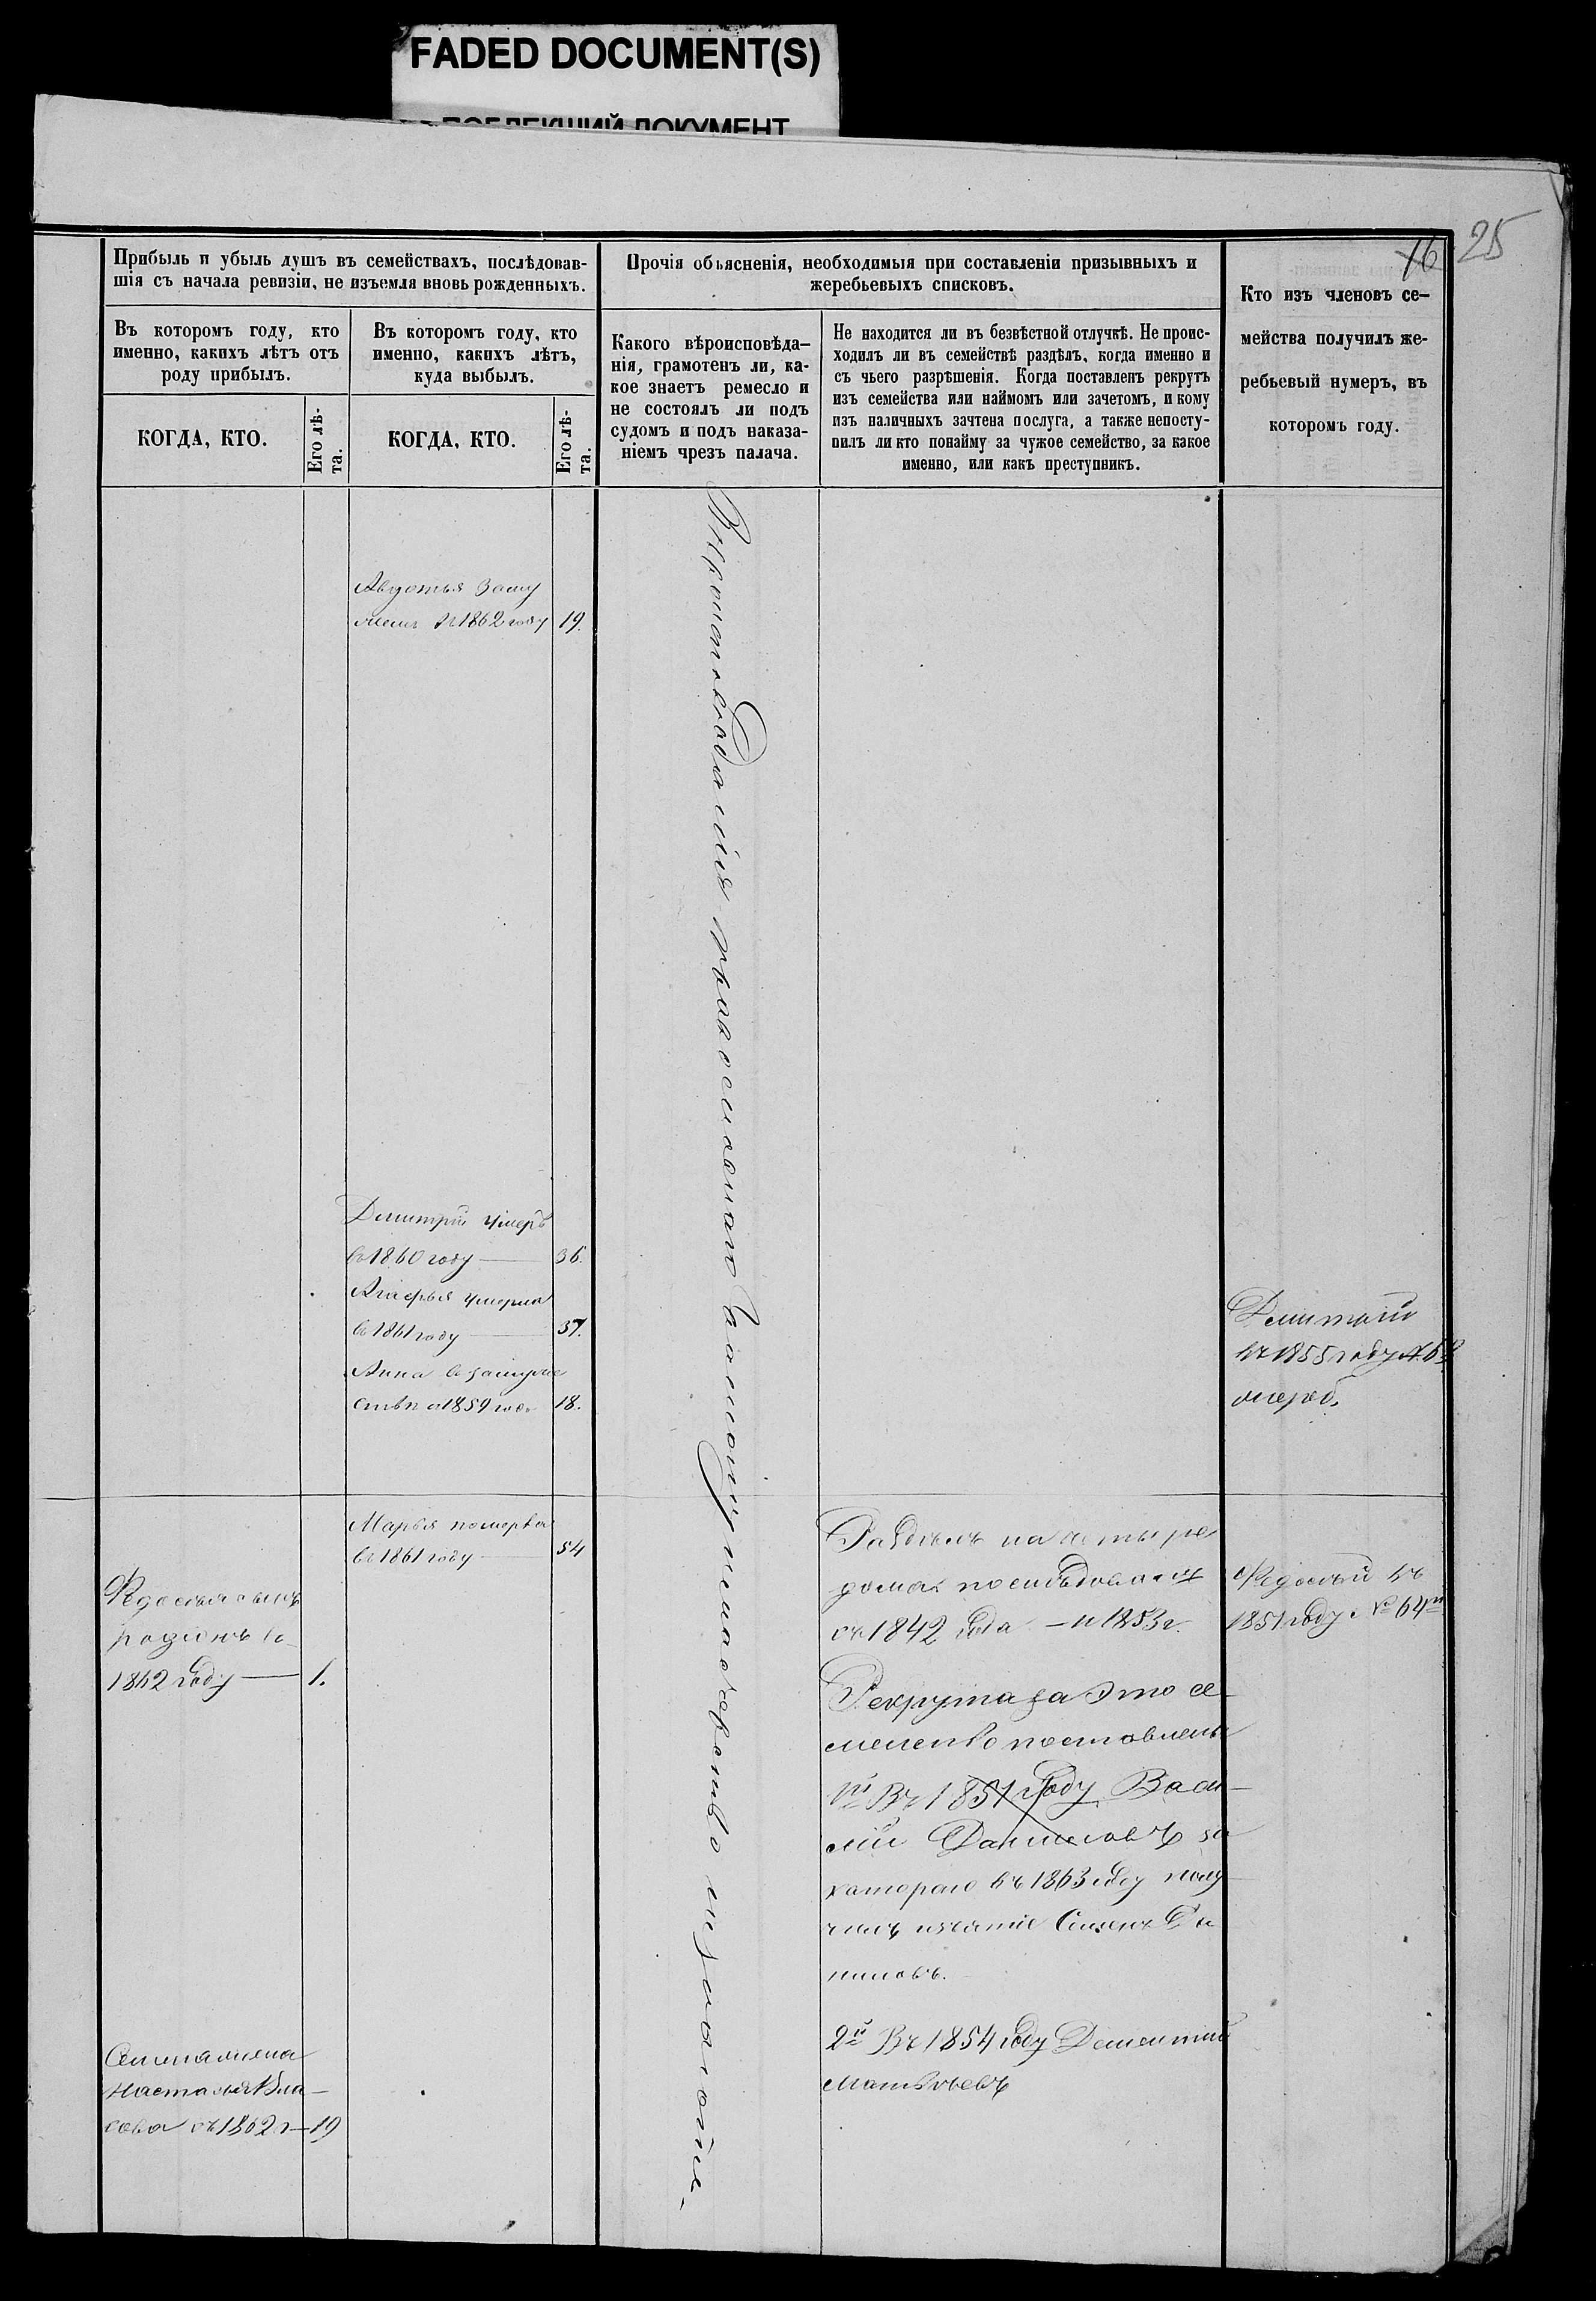 FADED DOCUMENT(S)
ДОКУМЕНТ
25
16
Прибыль и убыль душъ въ семействахъ, послѣдовав-
шія съ начала ревизіи, не изъемля вновь рожденныхъ.
Въ которомъ году, кто
именно, какихъ лѣтъ отъ
роду прибылъ.
КОГДА, КТО.
Его лѣ-
та.
Въ которомъ году, кто
именно, какихъ лѣтъ,
куда выбылъ.
КОГДА, КТО.
Его лѣ-
та.
Прочія объясненія, необходимыя при составленіи призывныхъ и
жеребьевыхъ списковъ.
Какого вѣроисповѣда-
нія, грамотенъ ли, ка-
кое знаетъ ремесло и
не состоялъ ли подъ
судомъ и подъ наказа-
ніемъ чрезъ палача.
Не находится ли въ безвѣстной отлучкѣ. Не проис-
ходилъ ли въ семействѣ раздѣлъ, когда именно и
съ чьего разрѣшенія. Когда поставленъ рекрутъ
изъ семейства или наймомъ или зачетомъ, и кому
изъ наличныхъ зачтена послуга, а также непосту-
пилъ ли кто понайму за чужое семейство, за какое
именно, или какъ преступникъ.
Кто изъ членовъ се-
мейства получилъ же-
ребьевый нумеръ, въ
которомъ году.
Авдотья заму
жемъ въ 1862 году 19.
Дмитрій умеръ
въ 1860 году 36.
Агафья умерла
въ 1861 году 37.
Анна въ замуже
ствѣ съ 1859 года 18.
Марья померла
въ 1861 году 54
Федосья сынъ
родіонъ въ
1862 году 1.
Настасья Вла-
сова съ 1862 г 19
Вѣроисповѣданія православнаго
Раздѣлъ на четыре
дома послѣдовалъ
съ 1842 года - и 1853 г.
Рекрута за это се-
мейство поставлены
1й Въ 1851 году Васи-
лій Даниловъ за
котораго въ 1863 году полу
чилъ Семенъ Да
ниловъ.
2й Въ 1854 году Дементій
Матвѣевъ
Дмитрій
въ 1855 году №
жереб.
Федосѣй въ
1851 году № 64й